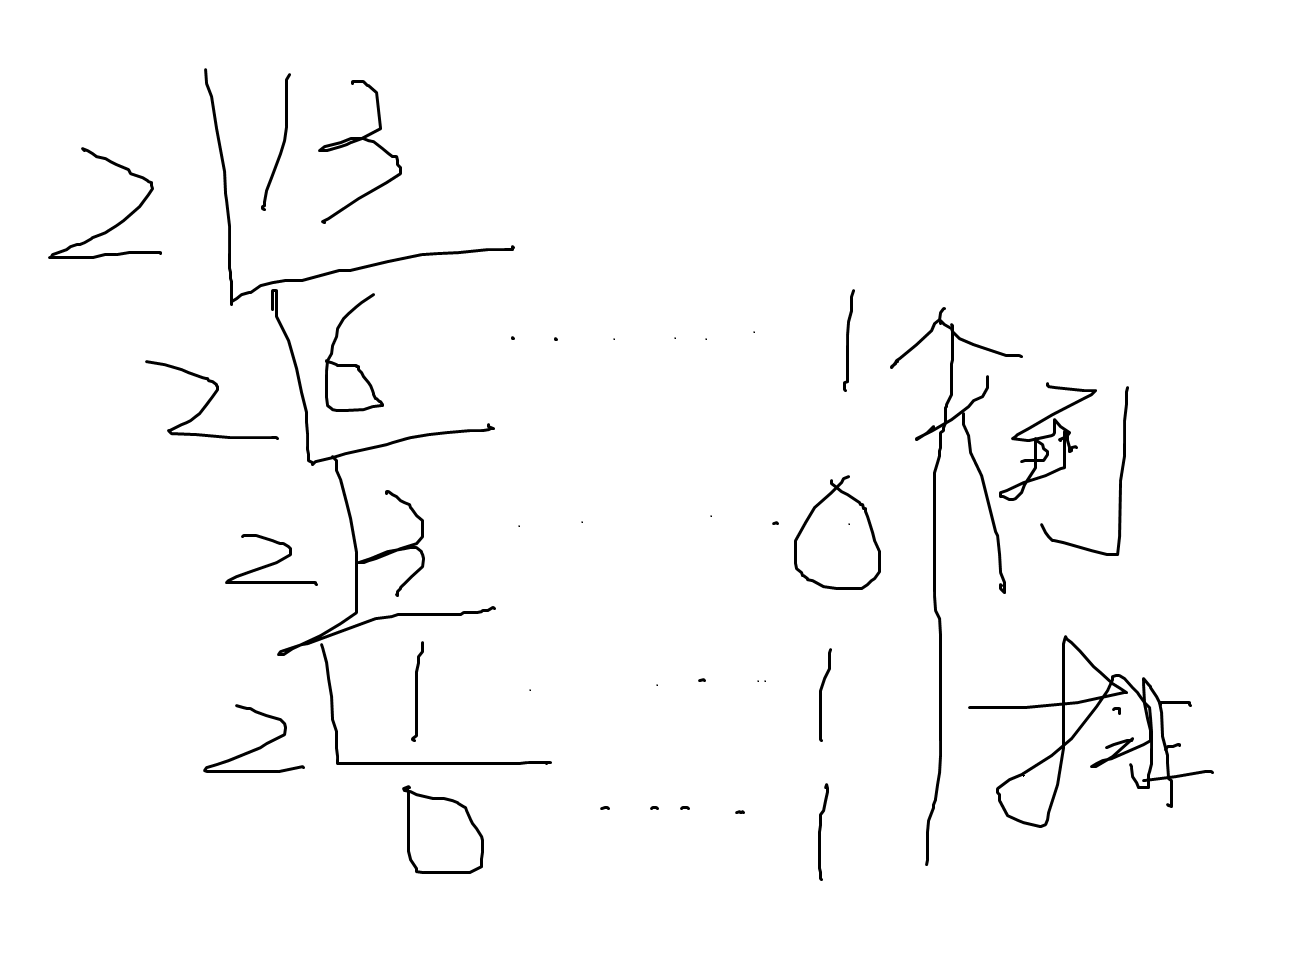 2 13
2 6 ..... 1
2 3 ..... 0
2 1 ..... 1
0 .... 1
倒
推